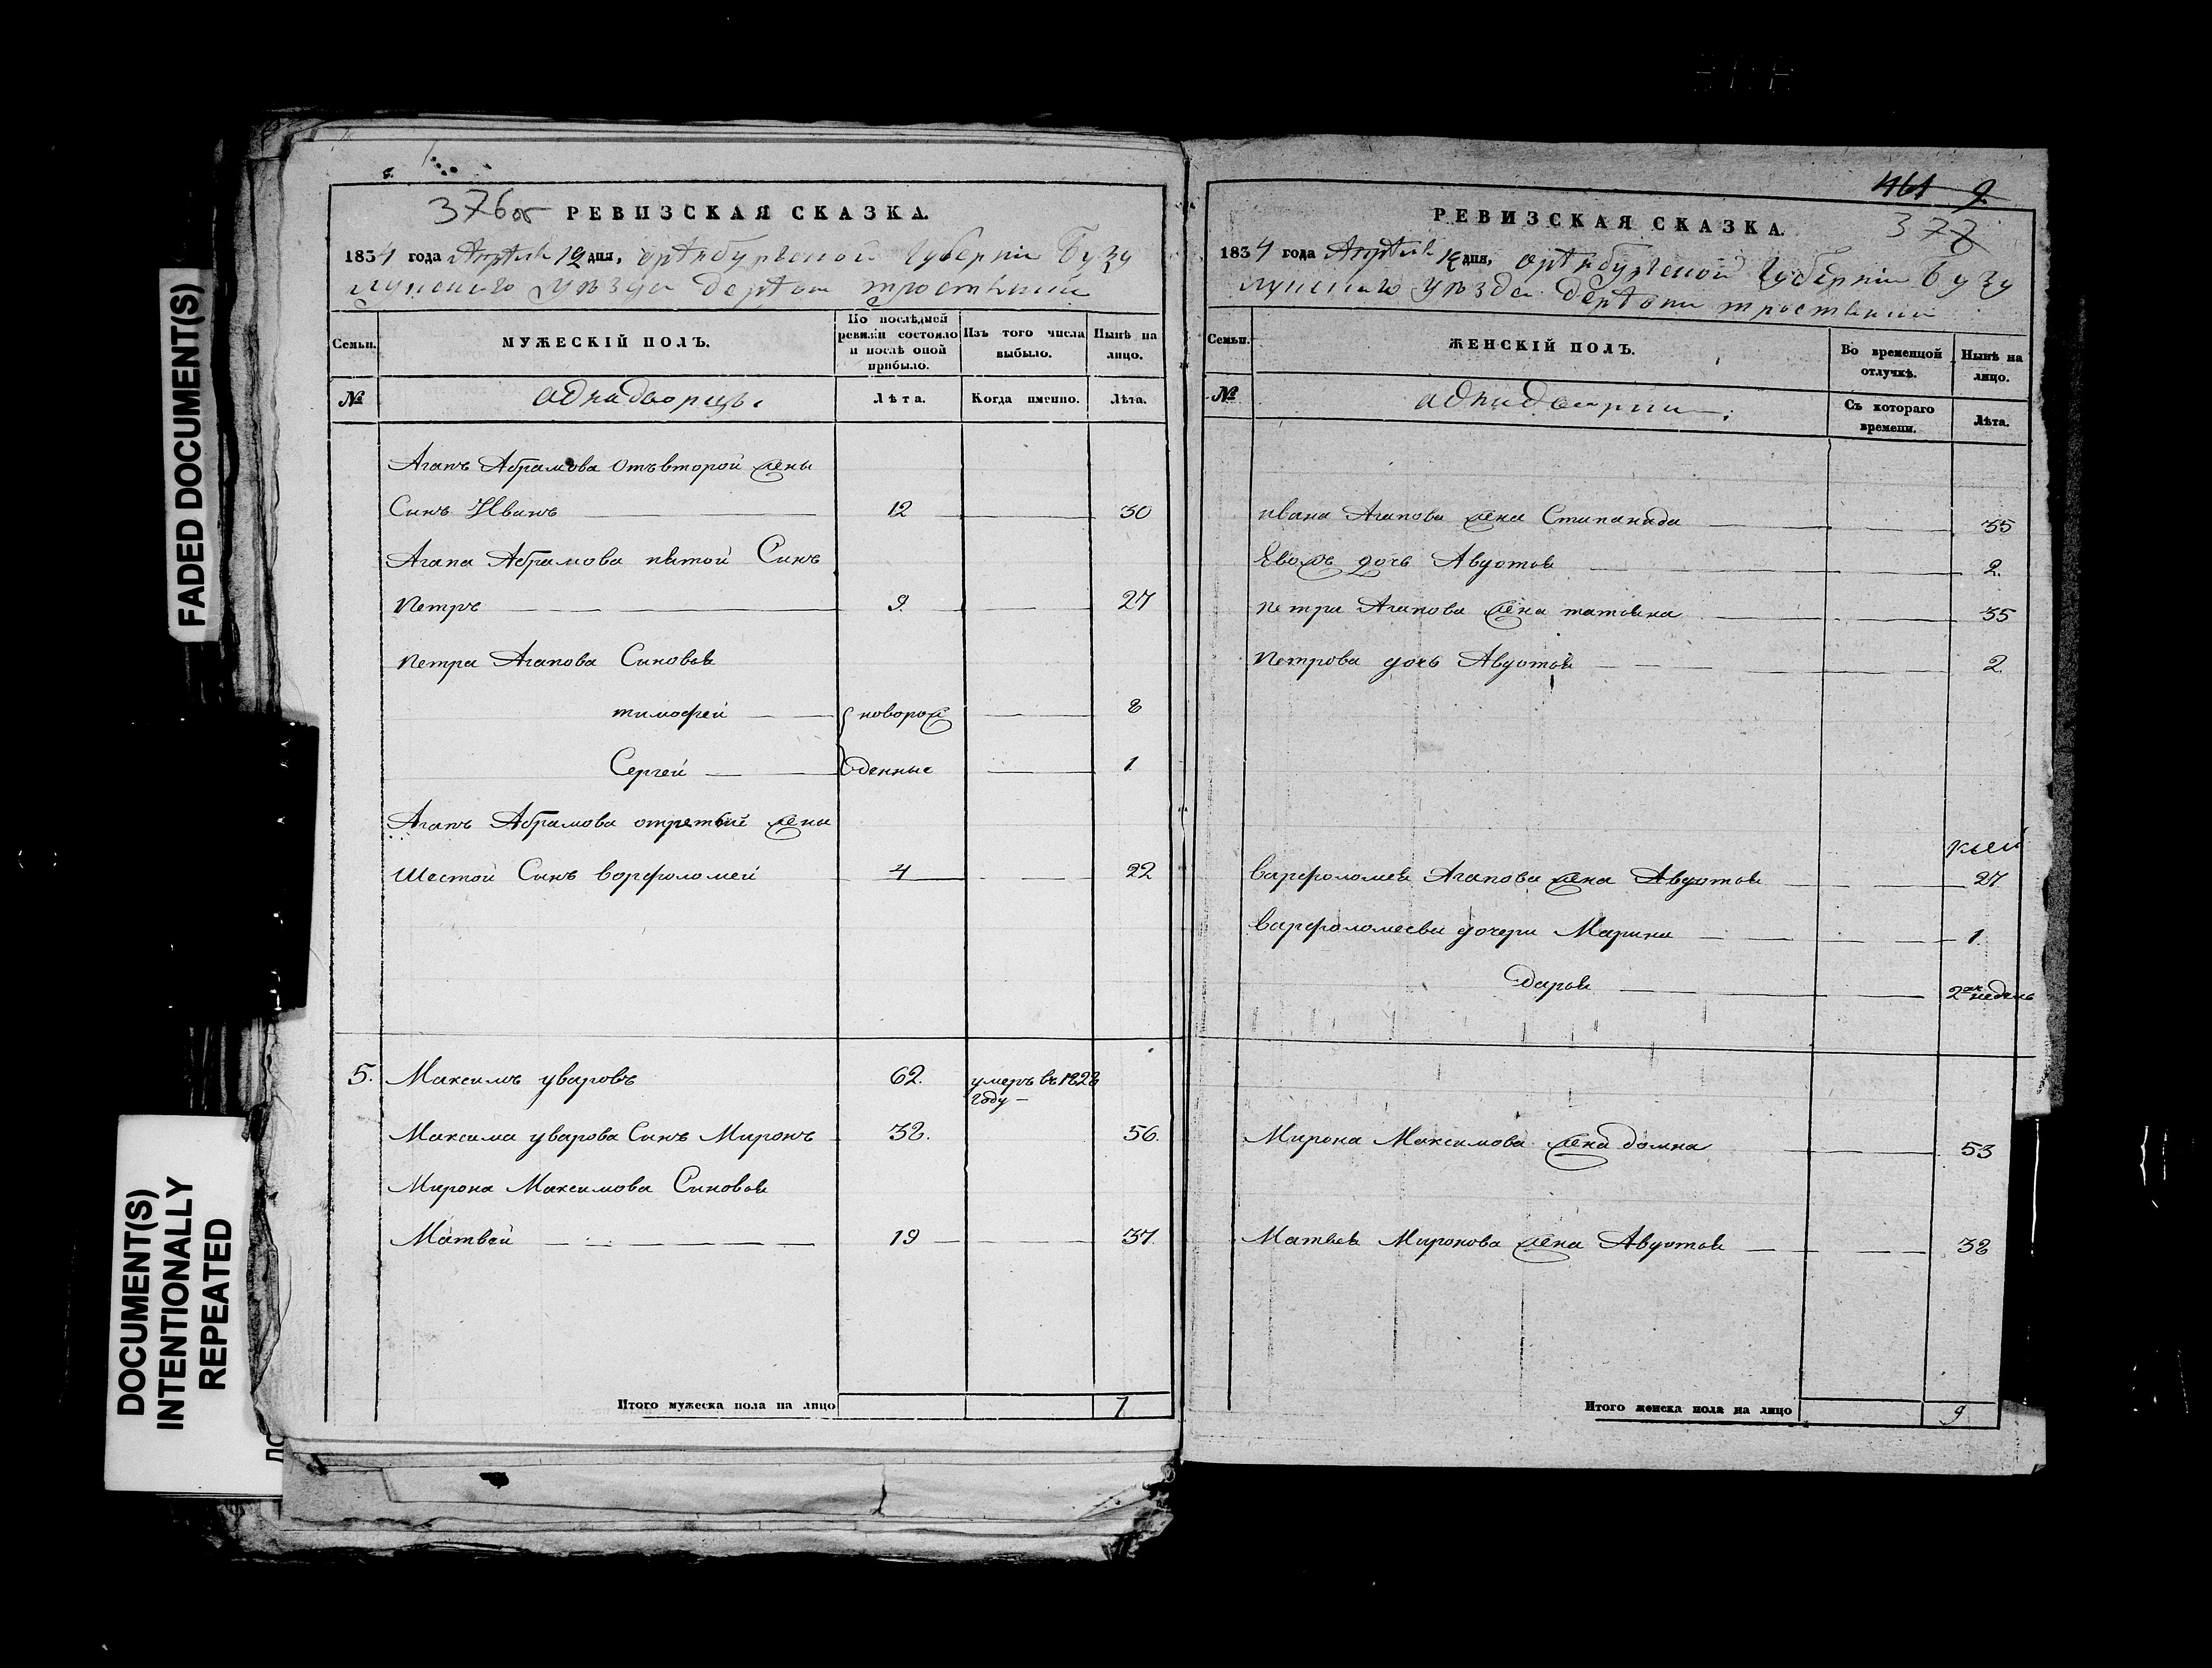 FADED DOCUMENT(S)
DOCUMENT(S)
INTENTIONALLY
REPEATED
8.
376об РЕВИЗСКАЯ СКАЗКА.
1834 года Апреля 12 дня, оренбургской губернiи Бузу
лукскаго уѣзда деревни тростянки
Семьи.
МУЖЕСКIЙ ПОЛЪ.
По послѣдней ревизiи состояло и послѣ оной прибыло.
Изъ того числа выбыло.
Нынѣ на лицо.
№
аднадворцы
Лѣта.
Когда именно.
Лѣта.
Агапъ Абрамова отъ второй жены
Синъ Иванъ 12 30
Агапа Абрамова пятой Синъ
петръ 9. 27
петра Агапова Синовья
тимофей новорож 8
Сергей денные 1.
Агапъ Абрамова отретьей жены
Шестой Синъ ворфоломей 4 22
5. Максимъ уваровъ 62. умеръ въ 1828
году
Максима уварова Синъ Миронъ 38. 56.
Мирона Максимова Синовья
Матвей 19 37.
Итого мужеска пола на лицо 7
461 9.
377
РЕВИЗСКАЯ СКАЗКА.
1834 года Апреля 12 дня, оренбургской губернiи бузу
лукскаго уѣзда деревни тростянки
Семьи.
ЖЕНСКIЙ ПОЛЪ.
Во временной отлучкѣ.
Нынѣ на лицо.
№
Съ котораго времени.
Лѣта.
ивана Агапова жена Стипанида 35
Евож дочь Авдотья 2.
петра Агапова жена татьяна 35
петрова дочь Авдотья 2.
варфоломея Агапова жена Авдотья 27
варфоломеева дочери Марина 1.
дарья 2 недель
Мирона Максимова жена домна 53
Матвея Миронова жена Авдотья 38
Итого женска пола на лицо 9